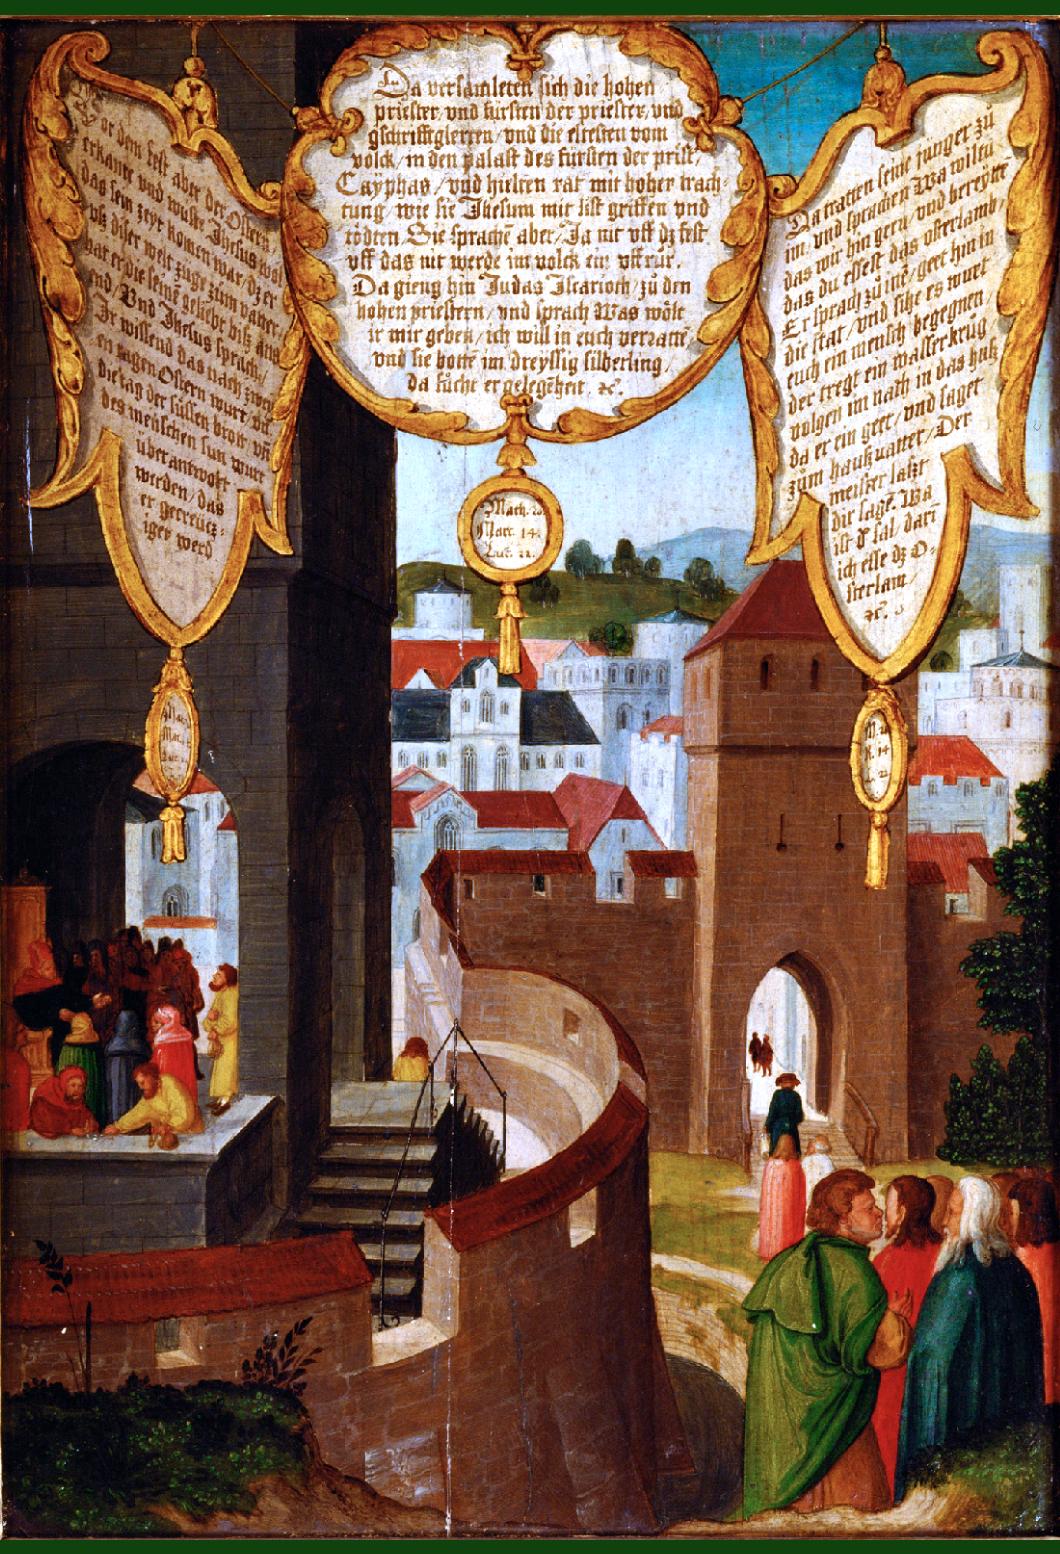 Vor dem fest aber der Ostern
erkante vnd wuste Jhesus wol
das sein zeyt komen war, dz er
vß diser welt zuge zum vatter
hat er die seinē geliebt biß ans
end, Vnd Jhesus sprach,
Ir wissend das nach zwei
en tagen Ostern wurt, vñ
die tag der süssen brott vñ
des menschen sun wurt
überantwort
werden, das
er gecreütz-
iget werd
Mach.
Marc.
Luc.
Da versamleten sich die hohen
priester vnd fürsten der priester, vnd
gschrifftglerten, vnd die eltesten vom
volck, in den palast des fürsten der prist,
Cayphas, vnd hielten rat mit hoher trach-
tung, wie sie Jhesum mit list griffen vnd
tödten. Sie sprachē aber, Ja nit vff dz fest
vff das nit werde im volck ein vffrůr.
Da gieng hin Judas Iscarioth, zů den
hohen priestern, vnd sprach Was wölt
ir mir geben, ich will in euch verratē
vnd sie botē im dreyssig silberling,
da sůcht er gelegēheit ꝛc.
Mach. 26
Marc. 14.
Luc. 22.
Da tratten seine junger zů
im vnd sprachen Wa wiltu
das wir hin gen, vnd bereytē
das du essest das osterlamb,
Er sprach zů inē, geet hin in
die stat, vnd sihe es wurt
euch ein mensch begegnen
der tregt ein wasserkrůg,
volgen im nach in das huß
da er ein geet, vnd saget
zům haußuatter, Der
meister laßt
dir sagē. Wa
ist d' sal, dari
ich esse dz o-
sterlam,
ꝛc.
M.
14
L. 22